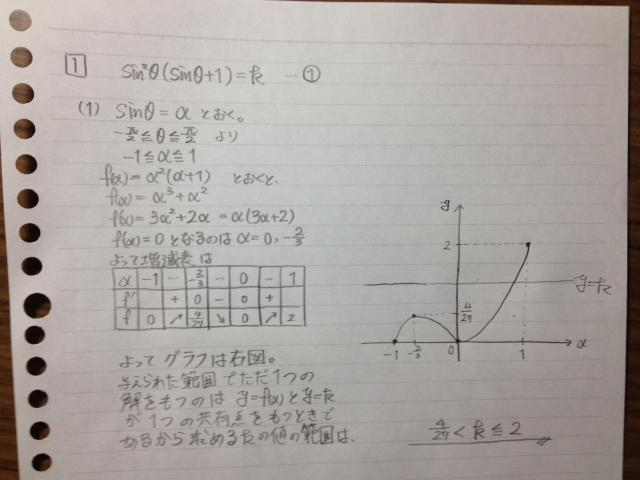 1 sin²θ(sinθ+1)=k …①
(1) sinθ=αとおく。
-π/2≦θ≦π/2 より
-1≦α≦1
f(α)=α²(α+1) とおくと、
f(α)=α³+α²
f'(α)=3α²+2α=α(3α+2)
f'(α)=0となるのはα=0, -2/3
よって増減表は
α -1 … -2/3 … 0 … 1
f' + 0 - 0 +
f 0 ↗ 4/27 ↘ 0 ↗ 2
y
2
y=k
4/27
-1 -2/3 0 1 α
よってグラフは右図。
与えられた範囲でただ1つの
解をもつのは y=f(α)とy=k
が1つの共有点をもつときで
あるから求めるkの値の範囲は、
4/27<k≦2